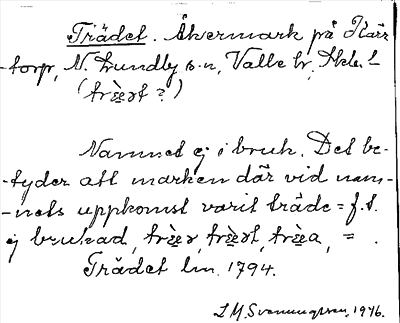 Trädet. Åkermark på Kärr
-torp, N. Lundby s-n, Valle hr, Skbl.
( ?)
Namnet ej i bruk. Det be-
-tyder att marken där vid nam-
-nets uppkomst varit träde = f.t.
ej brukad, = .
Trädet lm. 1794.
J. M. Svenungsson. 1946.